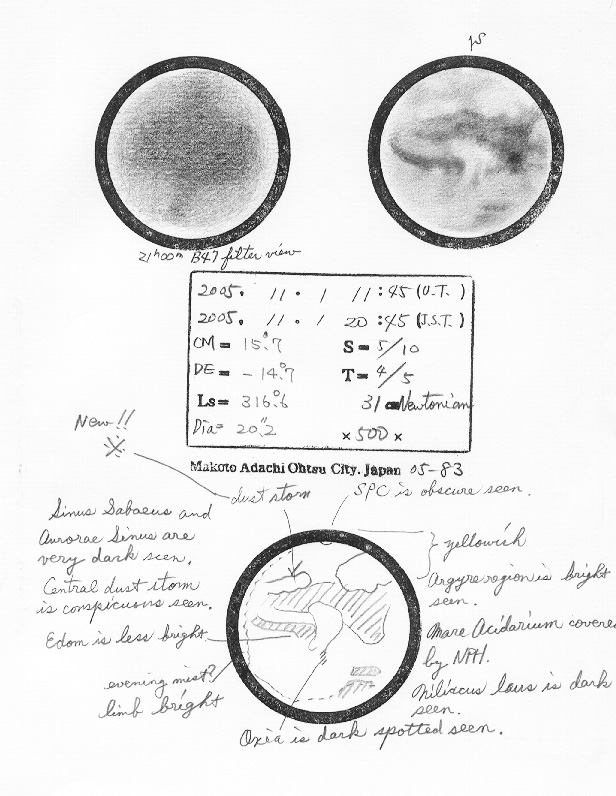 pS
21ʰ00ᵐ B47 filter view
2005. 11. 1 11:45 (U.T.)
2005. 11. 1 20:45 (J.S.T.)
CM= 15.°7 S= 5/10
DE= -14.°7 T= 4/5
Ls= 316.°6 31 cm Newtonian
Dia= 20."2 ×500 ×
Makoto Adachi Ohtsu City. Japan 05-83
New!!
※
dust storm
SPC is obscure seen.
Sinus Sabaeus and
Aurorae Sinus are
very dark seen.
Central dust storm
is conspicuous seen.
Edom is less bright
evening mist?
limb bright
} yellowish
Argyre region is bright
seen.
Mare Acidarium covered
by NPH.
Niliacus laus is dark
seen.
Oxia is dark spotted seen.